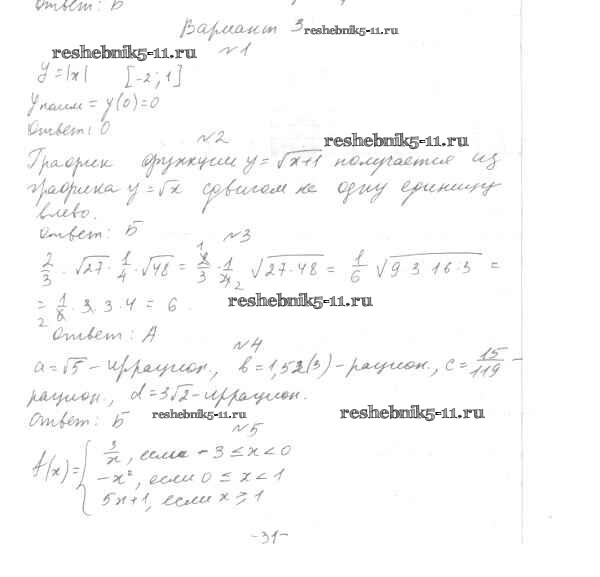 ответ: Б
Вариант 3 reshebnik5-11.ru
reshebnik5-11.ru №1
y=|x| [-2; 1]
yнаим = y(0)=0
ответ: 0
№2 reshebnik5-11.ru
График функции y=√x+1 получается из
графика y=√x сдвигом на одну единицу
влево.
ответ: Б
№3
2/3 · √27 · 1/4 · √48 = 2/3 · 1/4 √27·48 = 1/6 √9·3·16·3 =
= 1/6 · 3 · 3 · 4 = 6. reshebnik5-11.ru
ответ: А
№4
a=√5 - иррацион., b=1,52(3) - рацион., c=15/119 -
рацион., d=3√2 - иррацион.
ответ: Б reshebnik5-11.ru reshebnik5-11.ru
№5
f(x)= { 3/x, если -3 ≤ x < 0
-x², если 0 ≤ x < 1
5x+1, если x ≥ 1
-31-